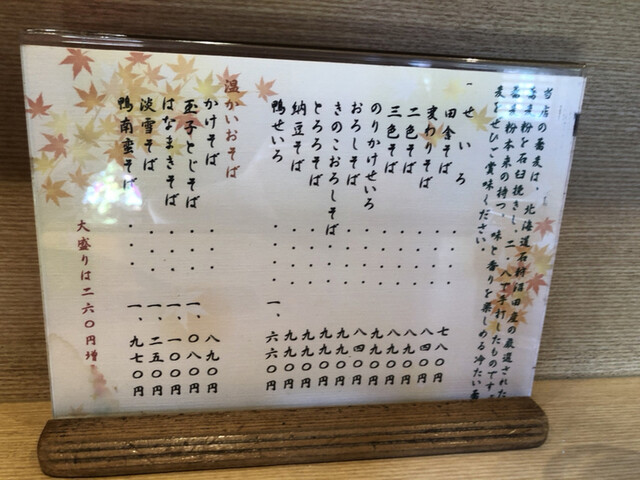 当店の蕎麦は、北海道石狩沼田産の厳選された
蕎麦粉を石臼挽きし、二、八で手打したものです。
蕎麦粉本来の持つ、味と香りを楽しめる冷たい蕎
麦をぜひご賞味ください。
せいろ・・・・七八〇円
田舎そば・・・・八四〇円
変わりそば・・・・八九〇円
二色そば・・・・八九〇円
三色そば・・・・九八〇円
のりかけせいろ・・・八四〇円
おろしそば・・・・九九〇円
きのこおろしそば・・・九九〇円
とろろそば・・・・九九〇円
納豆そば・・・・九九〇円
鴨せいろ・・・・一、六六〇円
温かいおそば
かけそば・・・・八九〇円
玉子とじそば・・・一、〇八〇円
はなまきそば・・・一、一〇〇円
淡雪そば・・・・一、二五〇円
鴨南蛮そば・・・・一、九七〇円
大盛りは二六〇円増